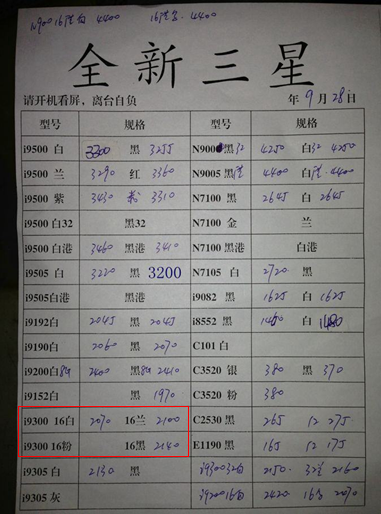 N900 16G白 4400 16港备. 4400
全新三星
请开机看屏，离台自负 年 9 月 28 日
型号 规格 型号 规格
i9500 白 3200 黑 3255 N900 黑32 4250 白32 4250
i9500 兰 3290 红 3360 N9005 黑港 4400 白港. 4400
i9500 紫 3430 粉 3310 N7100 黑 2645 白 2645
i9500 白32 黑32 N7100 金 兰
i9500 白港 3460 黑港 3410 N7100 黑港 白港
i9505 白 3220 黑 3200 N7105 白 2720 黑
i9505白港 黑港 i9082 黑 1625 白 1625
i9192白 2045 黑 2045 i8552 黑 1480 白 1480
i9190白 2060 黑 2070 C101 白
i9200白8G 2400 黑8G 2410 C3520 银 380 黑 370
i9152白 黑 1970 C3520 粉 380
i9300 16白 2070 16兰 2100 C2530 黑 265 红 275
i9300 16粉 16黑 2140 E1190 黑 165 红 175
i9305 白 2130 黑 i9300 32白 2150. 32兰 2160
i9305 灰 i9200 16白 2420 16 2070